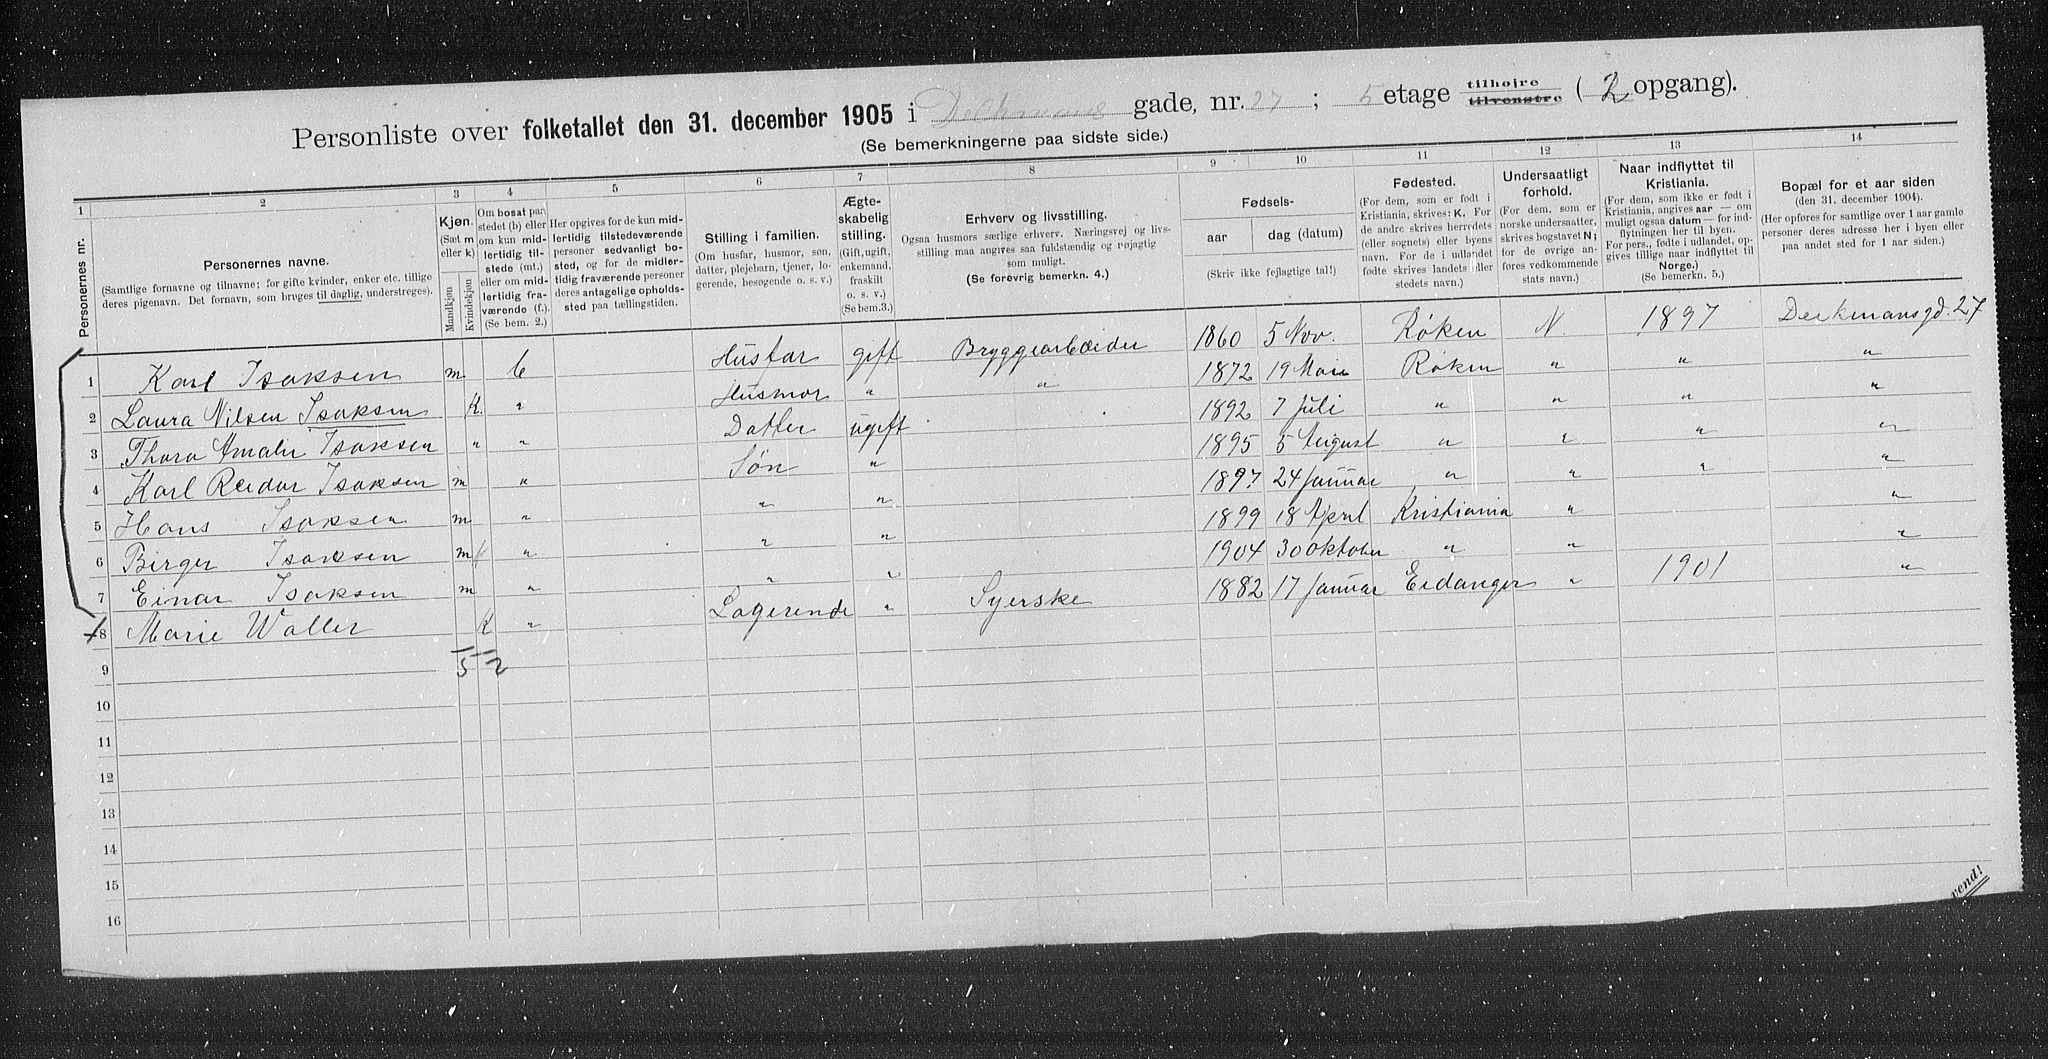 Personliste over folketallet den 31. december 1905 i Deichmans gade, nr. 27 ; 5 etage tilhøjre tilvenstre ( 2 opgang).
(Se bemerkningerne paa sidste side.)
1 2 3 4 5 6 7 8 9 10 11 12 13 14
Personernes nr.
Personernes navne.
(Samtlige fornavne og tilnavne; for gifte kvinder, enker etc. tillige deres pigenavn. Det fornavn, som bruges til daglig, understreges).
Kjøn.
(Sæt m eller k)
Mandkjøn
Kvindekjøn
Om bosat paa stedet (b) eller om kun midlertidig tilstede (mt.) eller om midlertidig fraværende (f.).
(Se bem. 2.)
Her opgives for de kun midlertidig tilstedeværende personer sedvanligt bosted, og for de midlertidig fraværende personer deres antagelige opholdssted paa tællingstiden.
Stilling i familien.
(Om husfar, husmor, søn, datter, plejebarn, tjener, logerende, besøgende o. s. v.)
Ægteskabelig stilling.
(Gift, ugift, enkemand, fraskilt o. s. v.)
(Se bem.3.)
Erhverv og livsstilling.
Ogsaa husmors særlige erhverv. Næringsvej og livsstilling maa angives saa fuldstændig og nøjagtig som muligt.
(Se forøvrig bemerkn. 4.)
Fødsels-
aar
dag (datum)
(Skriv ikke fejlagtige tal!)
Fødested.
(For dem, som er født i Kristiania, skrives: K. For de andre skrives herredets (eller sognets) eller byens navn. For de i udlandet fødte skrives landets eller stedets navn.)
Undersaatligt forhold.
(For dem, som er norske undersaatter, skrives bogstavet N; for de øvrige anføres vedkommende stats navn.)
Naar indflyttet til Kristiania.
(For dem, som ikke er født i Kristiania, angives aar — om muligt ogsaa datum — for indflytningen her til byen. For pers., fødte i udlandet, opgives tillige naar indflyttet til Norge.)
(Se bemerkn. 5.)
Bopæl for et aar siden
(den 31. december 1904).
(Her opføres for samtlige over 1 aar gamle personer deres adresse her i byen eller paa andet sted for 1 aar siden.)
1 Karl Isaksen m b Husfar gift Bryggearbeider 1860 5 Nov. Røken N 1897 Deikmansgd. 27
2 Laura Nilsen Isaksen K. " Husmor " " 1872 19 Mai Røken " " "
3 Thora Amalie Isaksen " " Datter ugift 1892 7 Juli " " " "
4 Karl Reidar Isaksen m " Søn " 1895 5 August " " " "
5 Hans Isaksen m " " " 1897 24 Januar " " " "
6 Birger Isaksen m " " " 1899 18 April Kristiania " "
7 Einar Isaksen m " " " 1904 30 Oktober " " "
8 Marie Waller K " Logerende " Syerske 1882 17 Januar Eidanger " 1901 "
9 5 2
10
11
12
13
14
15
16
vend!